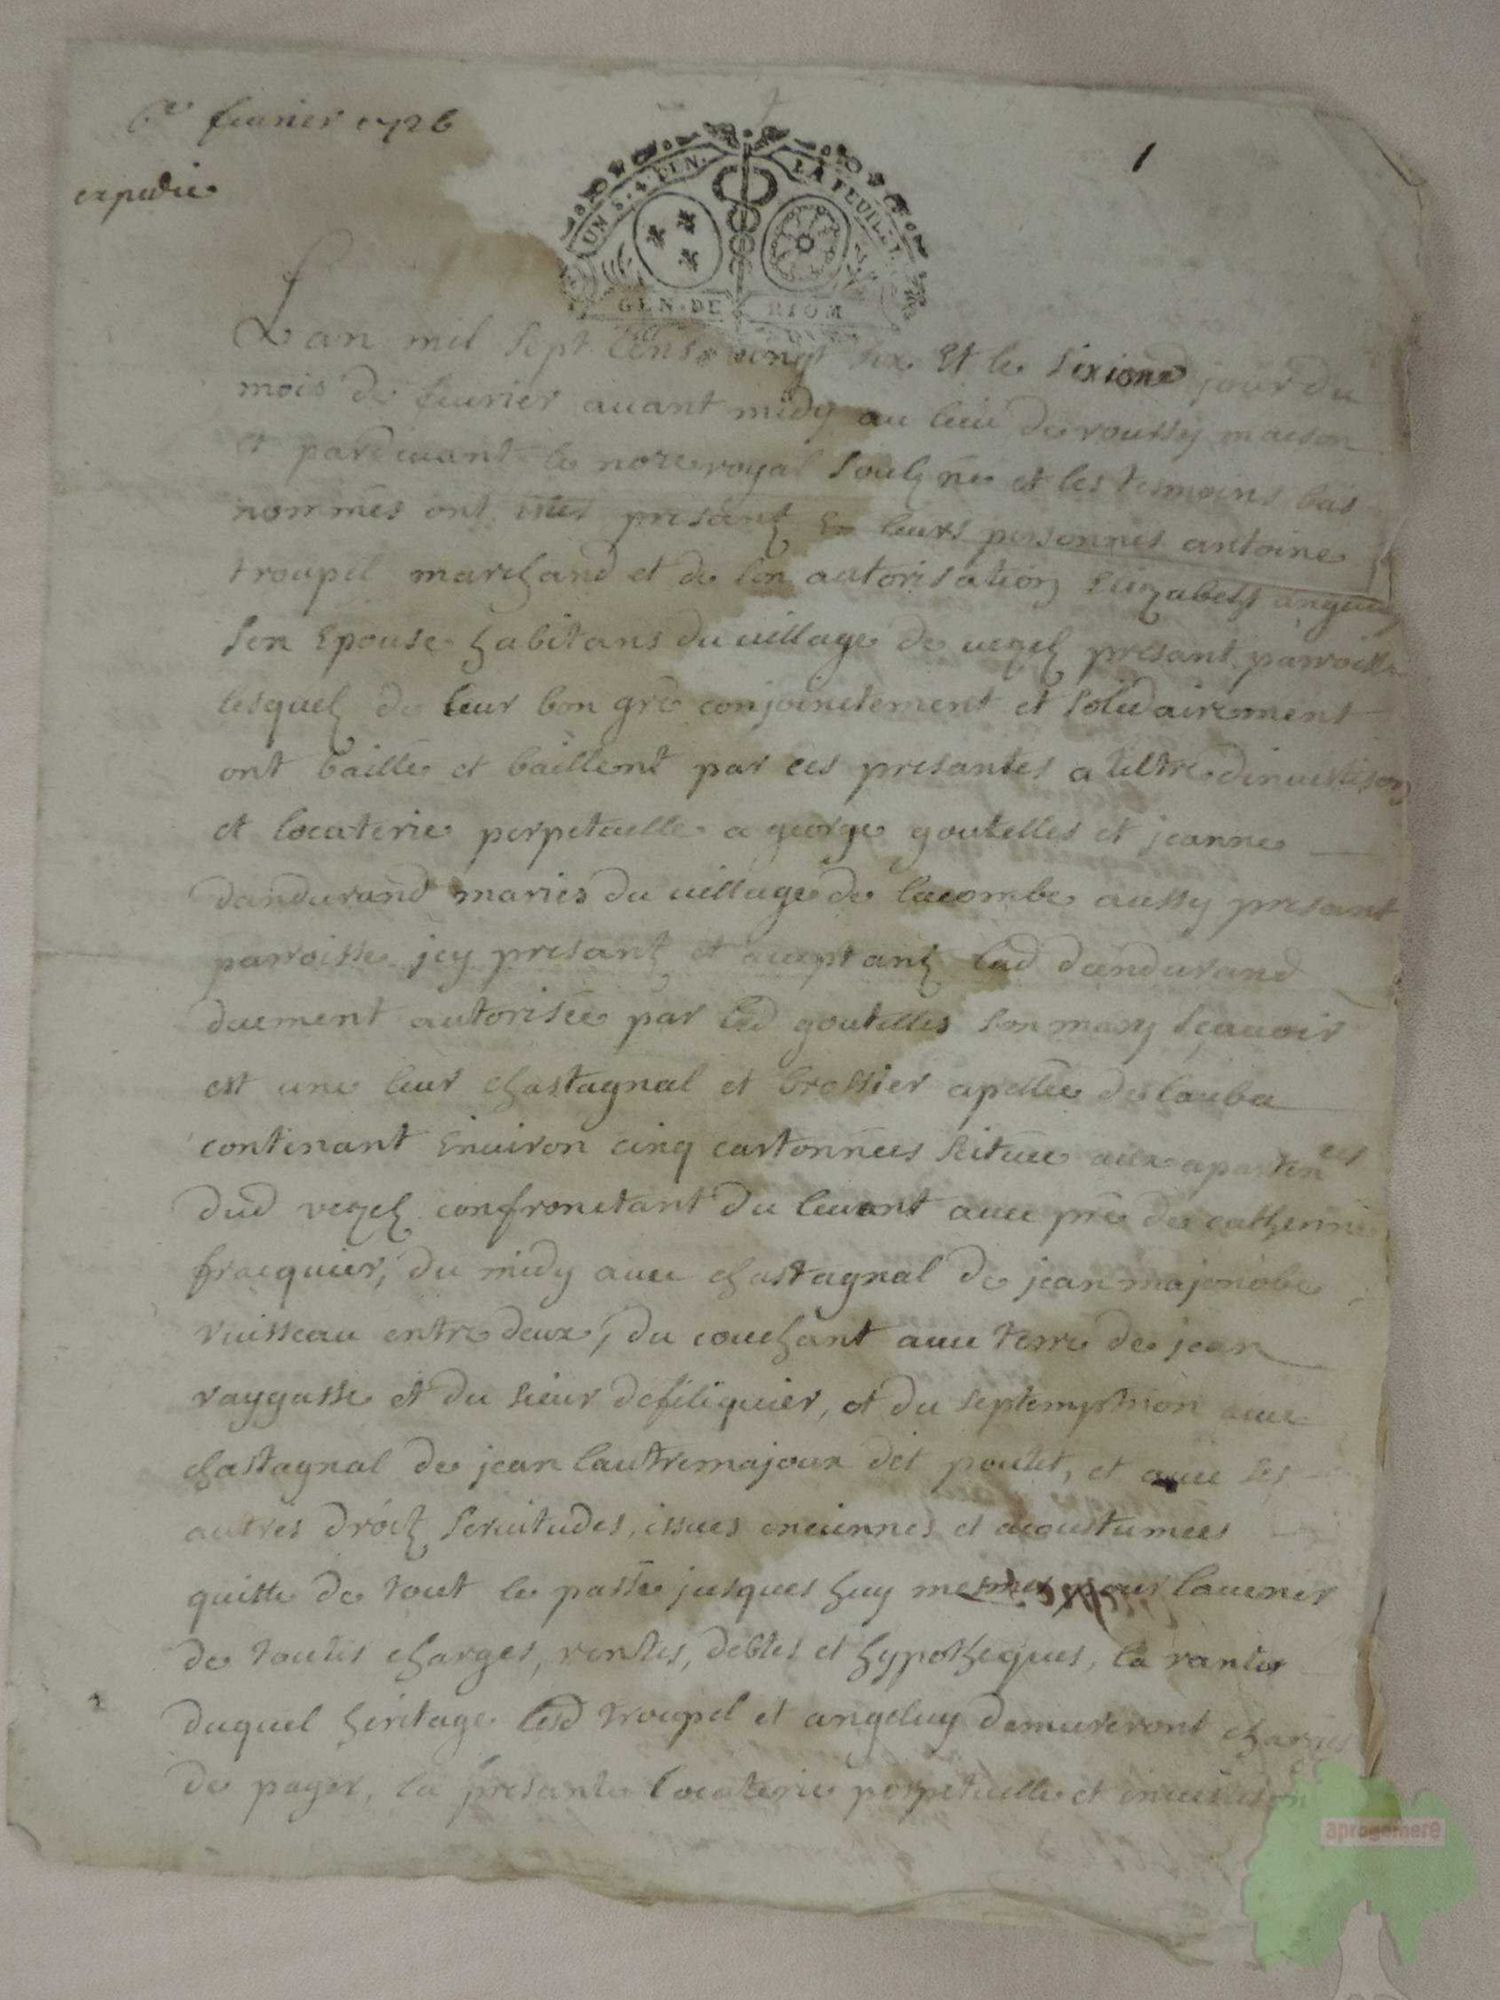 6e feurier 1726
expedié
1
UN S. 4 DEN. LA FEUILLE
GEN. DE RIOM
Lan mil sept cens vingt six et le sixieme jour du
mois de feurier auant midy au lieu de roussy maison
et pardeuant le nore royal soubzné et les tesmoins bas
nommés ont estés presantz en leurs personnes antoine
troupel marchand et de son autorisation Elizabeth angeluy
son Epouse habitans du uillage de vezelz presant parroisse
lesquelz de leur bon gré conjoinctement et solidairement
ont baillé et baillent par ces presantes a tiltre dinuestison
et locaterie perpetuelle a george goutelles et jeanne
dandurand mariés du uillage de lacombe aussy presant
parroisse jcy presantz et aceptantz lad dandurand
duement autorisée par led goutelles son mary sçauoir
est une leur chastagnal et brossier apellée de lauba
contenant Enuiron cinq cartonnées scituée aux apartences
dud vezelz confronctant du leuant auec pré de catherine
fracquier, du midy auec chastagnal de jean majonobe
ruisseau entre deux, du couchant auec terre de jean
raygasse et du sieur defiliquier, et du septemptrion auec
chastagnal de jean lautremajoux dit poulet, et auec ses
autres droitz seruitudes, issues enciennes et acoustumées
quitte de tout le passé jusques huy mesmes pour lauenir
de toutes charges, rentes, debtes et hypotheques, la rante
duquel heritage lesd troupel et angeluy demureront chargés
de payer, la presante locaterie perpetuelle et inuestison
aprogemere